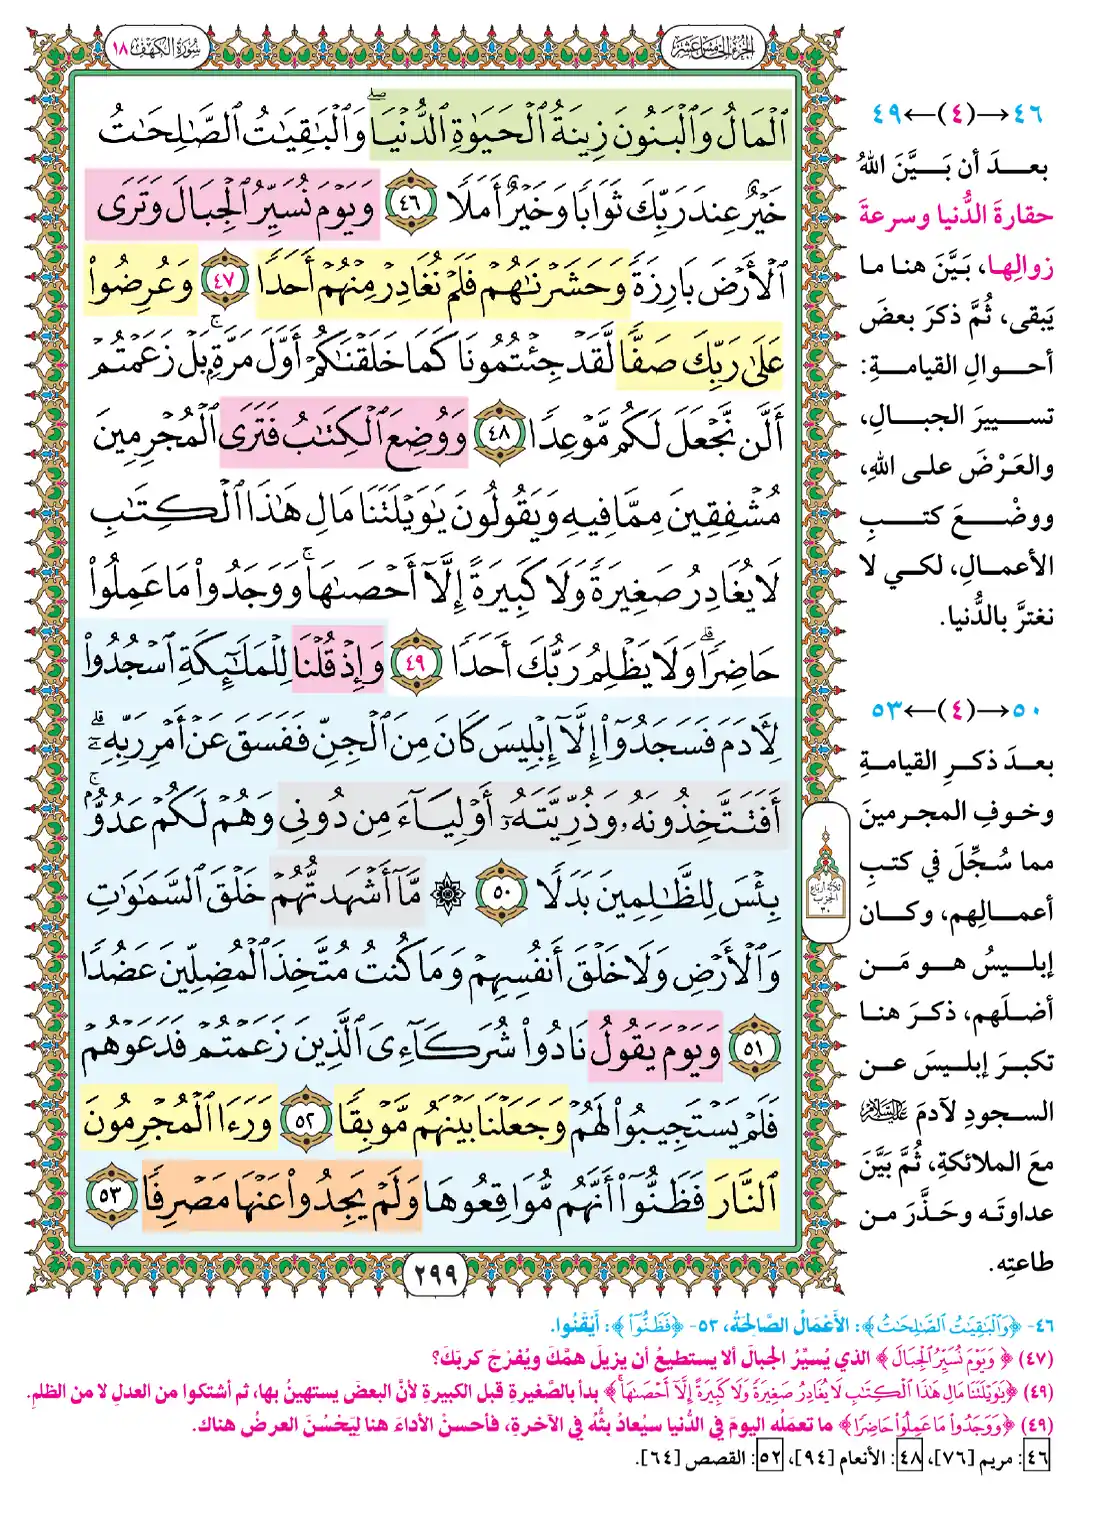 الجزء الخامس عشر
سورة الكهف ١٨
ٱلْمَالُ وَٱلْبَنُونَ زِينَةُ ٱلْحَيَوٰةِ ٱلدُّنْيَا ۖ وَٱلْبَٰقِيَٰتُ ٱلصَّٰلِحَٰتُ
خَيْرٌ عِندَ رَبِّكَ ثَوَابًا وَخَيْرٌ أَمَلًا ٤٦ وَيَوْمَ نُسَيِّرُ ٱلْجِبَالَ وَتَرَى
ٱلْأَرْضَ بَارِزَةً وَحَشَرْنَٰهُمْ فَلَمْ نُغَادِرْ مِنْهُمْ أَحَدًا ٤٧ وَعُرِضُوا۟
عَلَىٰ رَبِّكَ صَفًّا لَّقَدْ جِئْتُمُونَا كَمَا خَلَقْنَٰكُمْ أَوَّلَ مَرَّةٍۭ ۚ بَلْ زَعَمْتُمْ
أَلَّن نَّجْعَلَ لَكُم مَّوْعِدًا ٤٨ وَوُضِعَ ٱلْكِتَٰبُ فَتَرَى ٱلْمُجْرِمِينَ
مُشْفِقِينَ مِمَّا فِيهِ وَيَقُولُونَ يَٰوَيْلَتَنَا مَالِ هَٰذَا ٱلْكِتَٰبِ
لَا يُغَادِرُ صَغِيرَةً وَلَا كَبِيرَةً إِلَّآ أَحْصَىٰهَا ۚ وَوَجَدُوا۟ مَا عَمِلُوا۟
حَاضِرًا ۗ وَلَا يَظْلِمُ رَبُّكَ أَحَدًا ٤٩ وَإِذْ قُلْنَا لِلْمَلَٰٓئِكَةِ ٱسْجُدُوا۟
لِءَادَمَ فَسَجَدُوٓا۟ إِلَّآ إِبْلِيسَ كَانَ مِنَ ٱلْجِنِّ فَفَسَقَ عَنْ أَمْرِ رَبِّهِۦٓ ۗ
أَفَتَتَّخِذُونَهُۥ وَذُرِّيَّتَهُۥٓ أَوْلِيَآءَ مِن دُونِى وَهُمْ لَكُمْ عَدُوٌّۢ ۚ
بِئْسَ لِلظَّٰلِمِينَ بَدَلًا ٥٠ ۞ مَّآ أَشْهَدتُّهُمْ خَلْقَ ٱلسَّمَٰوَٰتِ
وَٱلْأَرْضِ وَلَا خَلْقَ أَنفُسِهِمْ وَمَا كُنتُ مُتَّخِذَ ٱلْمُضِلِّينَ عَضُدًا
٥١ وَيَوْمَ يَقُولُ نَادُوا۟ شُرَكَآءِىَ ٱلَّذِينَ زَعَمْتُمْ فَدَعَوْهُمْ
فَلَمْ يَسْتَجِيبُوا۟ لَهُمْ وَجَعَلْنَا بَيْنَهُم مَّوْبِقًا ٥٢ وَرَءَا ٱلْمُجْرِمُونَ
ٱلنَّارَ فَظَنُّوٓا۟ أَنَّهُم مُّوَاقِعُوهَا وَلَمْ يَجِدُوا۟ عَنْهَا مَصْرِفًا ٥٣
ثلاثة أرباع
الحزب
٣٠
٢٩٩
٤٦→(٤)←٤٩
بعدَ أن بَيَّنَ اللهُ
حقارةَ الدُّنيا وسرعةَ
زوالِها، بَيَّنَ هنا ما
يَبقى، ثُمَّ ذكرَ بعضَ
أحوالِ القيامةِ:
تسييرَ الجبالِ،
والعَرْضَ على اللهِ،
ووضْعَ كتبِ
الأعمالِ، لكي لا
نغترَّ بالدُّنيا.
٥٠→(٤)←٥٣
بعدَ ذكرِ القيامةِ
وخوفِ المجرمينَ
مما سُجِّلَ في كتبِ
أعمالِهم، وكان
إبليسُ هو مَن
أضلَهم، ذكرَ هنا
تكبرَ إبليسَ عن
السجودِ لآدمَ عليه السلام
معَ الملائكةِ، ثُمَّ بَيَّنَ
عداوتَه وحَذَّرَ من
طاعتِه.
٤٦- ﴿وَٱلْبَٰقِيَٰتُ ٱلصَّٰلِحَٰتُ﴾: الأَعْمَالُ الصَّالِحَةُ، ٥٣- ﴿فَظَنُّوٓا۟﴾: أَيْقَنُوا.
(٤٧) ﴿وَيَوْمَ نُسَيِّرُ ٱلْجِبَالَ﴾ الذي يُسيِّرُ الجبالَ ألا يستطيعُ أن يزيلَ همَّكَ ويُفرّجَ كربَكَ؟
(٤٩) ﴿يَٰوَيْلَتَنَا مَالِ هَٰذَا ٱلْكِتَٰبِ لَا يُغَادِرُ صَغِيرَةً وَلَا كَبِيرَةً إِلَّآ أَحْصَىٰهَا﴾ بدأ بالصَّغيرةِ قبل الكبيرةِ لأنَّ البعضَ يستهينُ بها، ثم أشتكوا من العدلِ لا من الظلمِ.
(٤٩) ﴿وَوَجَدُوا۟ مَا عَمِلُوا۟ حَاضِرًا﴾ ما تعمَلُه اليومَ في الدُّنيا سيُعادُ بثُّه في الآخرةِ، فأحسنْ الأداءَ هنا لِيَحْسُنَ العرضُ هناك.
٤٦: مريم [٧٦]، ٤٨: الأنعام [٩٤]، ٥٢: القصص [٦٤].